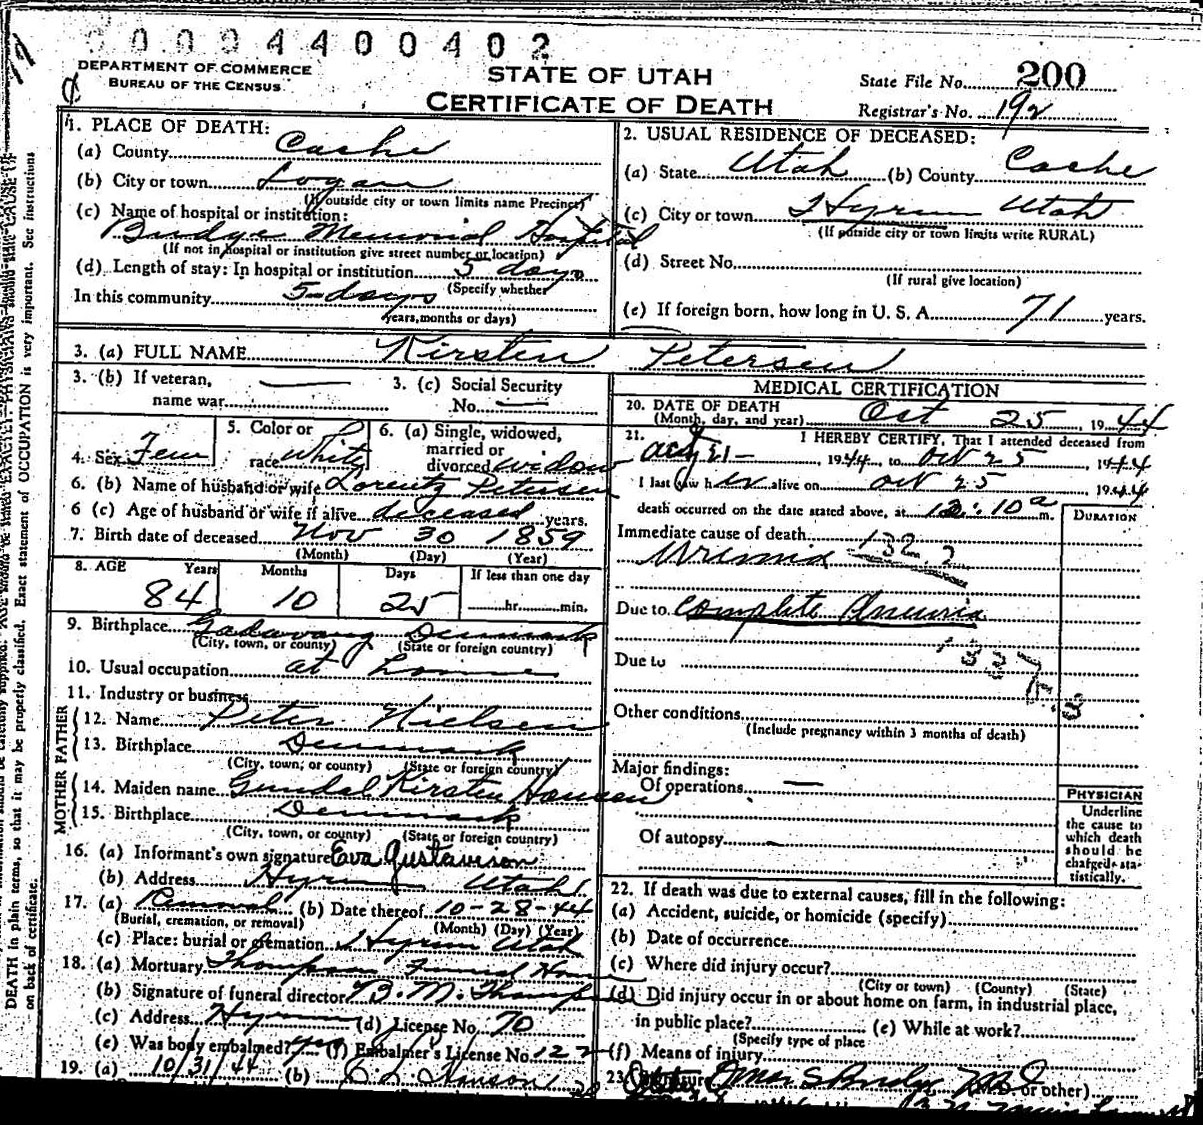 00094400402
DEPARTMENT OF COMMERCE
BUREAU OF THE CENSUS
STATE OF UTAH
CERTIFICATE OF DEATH
State File No. 200
Registrar's No. 192
1. PLACE OF DEATH:
(a) County Cache
(b) City or town Logan
(If outside city or town limits name Precinct)
(c) Name of hospital or institution:
Budge Memorial Hospital
(If not in hospital or institution give street number or location)
(d) Length of stay: In hospital or institution 5 days
(Specify whether
In this community 5 days
years, months or days)
2. USUAL RESIDENCE OF DECEASED:
(a) State Utah (b) County Cache
(c) City or town Hyrum Utah
(If outside city or town limits write RURAL)
(d) Street No.
(If rural give location)
(e) If foreign born, how long in U. S. A. 71 years.
3. (a) FULL NAME Kirsten Petersen
3. (b) If veteran, name war
3. (c) Social Security No.
4. Sex Fem
5. Color or race White
6. (a) Single, widowed, married or divorced widow
6. (b) Name of husband or wife Lorentz Petersen
6 (c) Age of husband or wife if alive deceased years.
7. Birth date of deceased Nov 30 1859
(Month) (Day) (Year)
8. AGE Years Months Days If less than one day
84 10 25 hr. min.
9. Birthplace Denmark
(City, town, or county) (State or foreign country)
10. Usual occupation at home
11. Industry or business
FATHER
12. Name Peter Nielsen
13. Birthplace Denmark
(City, town, or county) (State or foreign country)
MOTHER
14. Maiden name Gundal Kirsten Hansen
15. Birthplace Denmark
(City, town, or county) (State or foreign country)
16. (a) Informant's own signature Eva Gustaveson
(b) Address Hyrum Utah
17. (a) Removal (b) Date thereof 10-28-44
(Burial, cremation, or removal) (Month) (Day) (Year)
(c) Place: burial or cremation Hyrum Utah
18. (a) Mortuary Thompson Funeral Home
(b) Signature of funeral director B. M. Thompson
(c) Address Hyrum (d) License No. 70
(e) Was body embalmed? yes (f) Embalmer's License No. 122
19. (a) 10/31/44 (b) C L Hanson
MEDICAL CERTIFICATION
20. DATE OF DEATH
(Month, day, and year) Oct 25, 1944
21. I HEREBY CERTIFY, That I attended deceased from
Oct 21-, 1944, to Oct 25, 1944
I last saw her alive on Oct 25 1944
death occurred on the date stated above, at 12:10 a m.
DURATION
Immediate cause of death
Uremia 132.2
Due to complete Anuria
Due to
137.3
Other conditions
(Include pregnancy within 3 months of death)
Major findings:
Of operations
Of autopsy
PHYSICIAN
Underline
the cause to
which death
should be
charged sta-
tistically.
22. If death was due to external causes, fill in the following:
(a) Accident, suicide, or homicide (specify)
(b) Date of occurrence
(c) Where did injury occur?
(City or town) (County) (State)
(d) Did injury occur in or about home on farm, in industrial place,
in public place? (e) While at work?
(Specify type of place
(f) Means of injury
23. Signature Omer S Budge M.D. (M.D. or other)
DEATH in plain terms, so that it may be properly classified. Exact statement of OCCUPATION is very important. See instructions
on back of certificate.